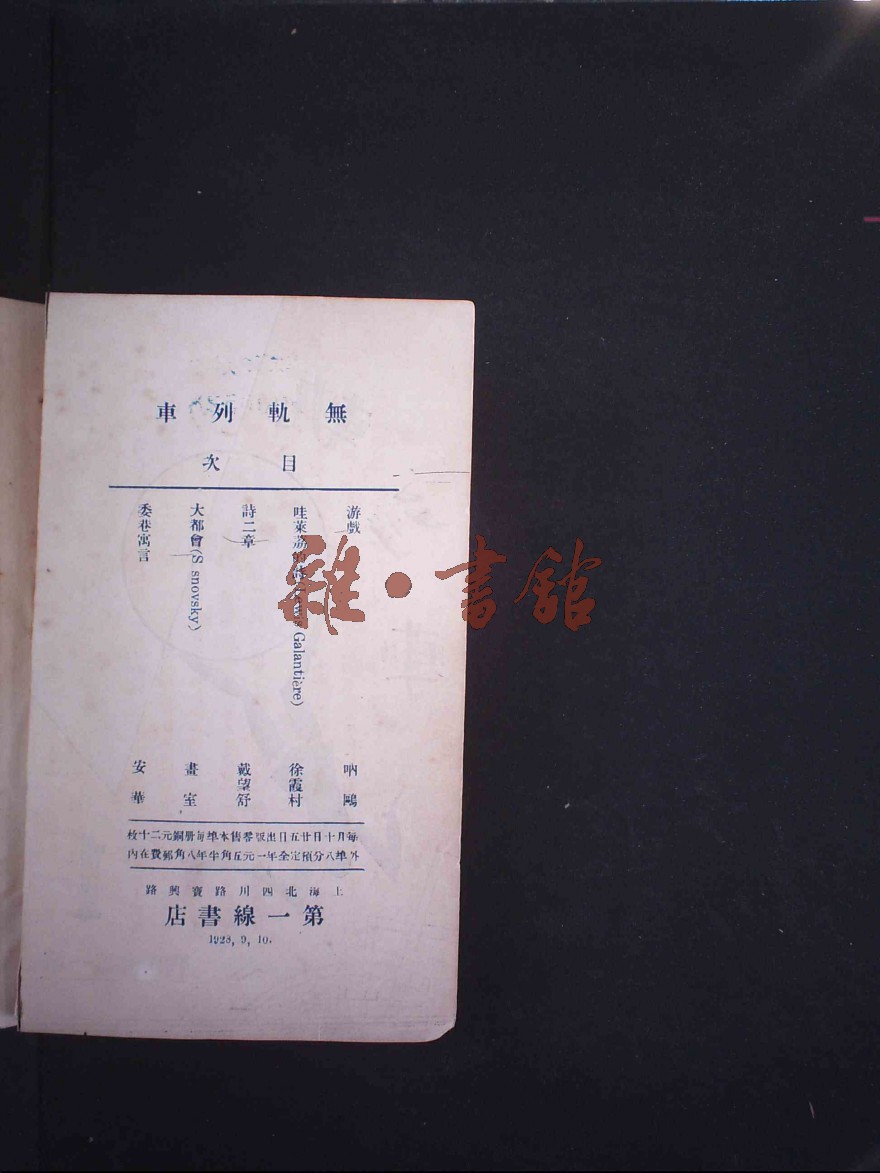 無軌列車
目次
游戲
哇萊荔的詩(Lewis Galantière)
詩二章
大都會(S snovsky)
委巷寓言
吶鷗
徐霞村
戴望舒
畫室
安華
每月十日廿五日出版零售本埠每册銅元二十枚
外埠八分預定全年一元五角半年八角郵費在內
上海北四川路寶興路
第一線書店
1928, 9, 10.
雜·書館